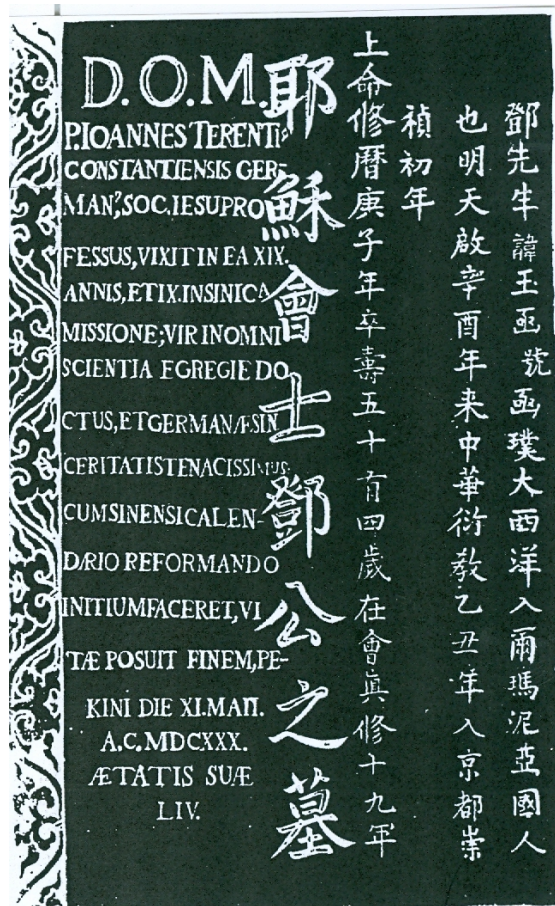 D.O.M.
P.IOANNES TERENTIs
CONSTANTIENSIS GER-
MANs,SOC.IESU PRO
FESSUS,VIXIT IN EA XIX.
ANNIS,ET IX.IN SINICA
MISSIONE;VIR IN OMNI
SCIENTIA EGREGIE DO
CTUS,ET GERMANÆ SIN
CERITATIS TENACISSIMUS.
CUM SINENSI CALEN-
DARIO REFORMANDO
INITIUM FACERET,VI
TÆ POSUIT FINEM,PE-
KINI DIE XI.MAII.
A.C.MDCXXX.
ÆTATIS SUÆ
LIV.
鄧先生諱玉函號函璞大西洋入爾瑪泥亞國人
也明天啟辛酉年来中華衍教乙丑年入京都崇
禎初年
上命修曆庚子年卒壽五十有四歲在會眞修十九年
耶穌會士鄧公之墓